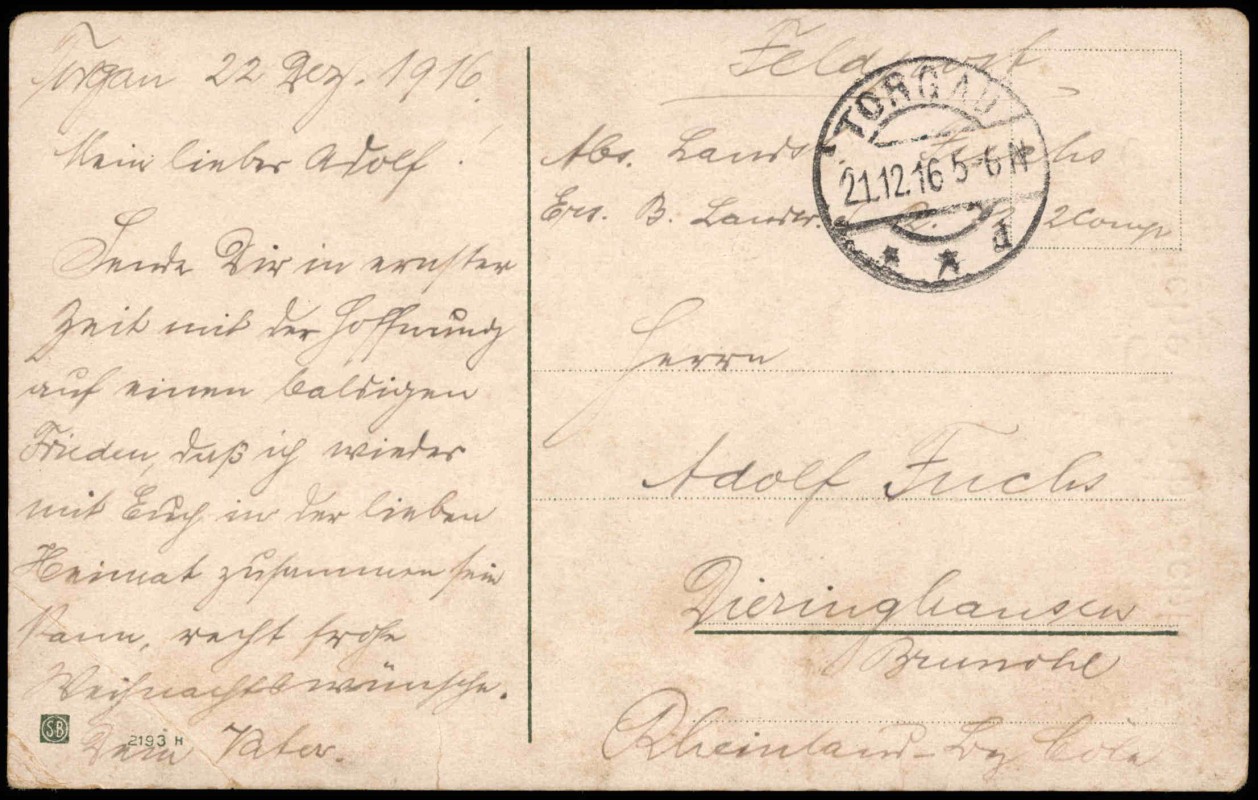 Torgau 22 Dez. 1916.
Mein lieber Adolf!
Sende Dir in ernster
Zeit mit der Hoffnung
auf einen baldigen
Frieden, daß ich wieder
mit Euch in der lieben
Heimat zusammen sein
kann, recht frohe
Weihnachtswünsche.
Dein Vater.
S·B
2193 H
Feldpost
TORGAU
21.12.16 5-6 N
* * d
Abs. Lands. Fuchs
Ers. B. Landst. 2 Comp
Herrn
Adolf Fuchs
Dieringhausen
Brunohl
Rheinland - Bz Cöln